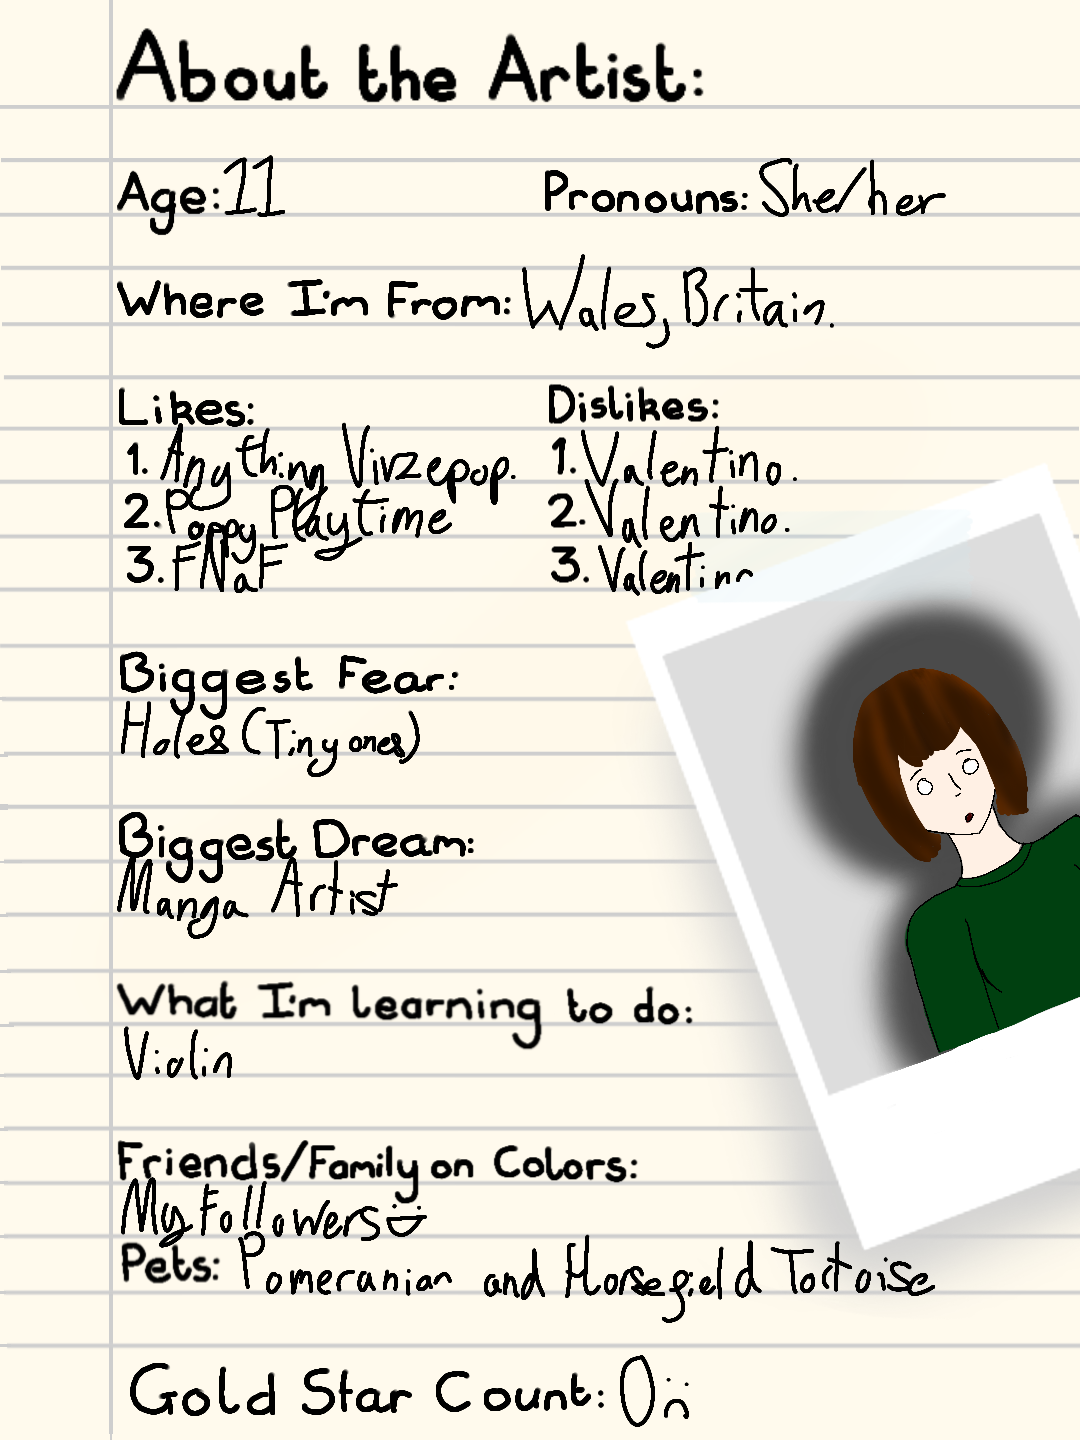 About the Artist:
Age: 11 Pronouns: She/her
Where I'm From: Wales, Britain.
Likes: Dislikes:
1. Anything Vivzepop. 1. Valentino.
2. Poppy Playtime 2. Valentino.
3. FNaF 3. Valentino
Biggest Fear:
Holes (Tiny ones)
Biggest Dream:
Manga Artist
What I'm learning to do:
Violin
Friends/Family on Colors:
My Followers
Pets: Pomeranian and Horsefield Tortoise
Gold Star Count: 0